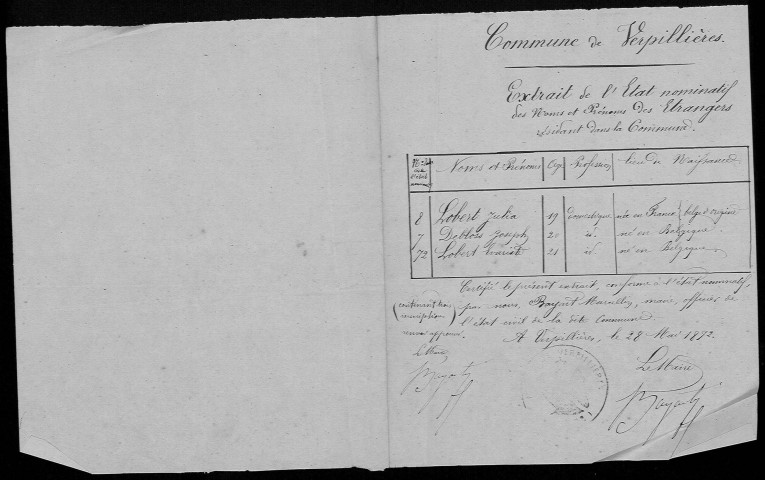 Commune de Verpillières.
Extrait de l'Etat nominatif
des Noms et Prénoms des Etrangers
résidant dans la Commune.
Noms et Prénoms Age Profession Lieu de Naissance
8 Lobert Julia 19 domestique née en France belge d'origine
7 Deblois Joseph 20 id. né en Belgique
72 Lobert 21 id. né en Belgique
Certifié le présent extrait, conforme à l'état nominatif,
par nous, maire, officier de
l'état civil de la dite Commune
A Verpillières, le 28 Mai 1892.
contenant trois
inscriptions
Le Maire
Le Maire